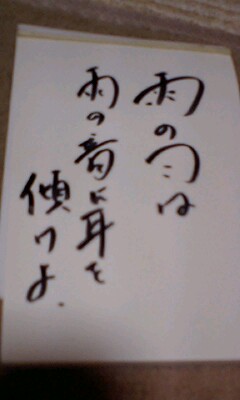 雨の日は
雨の音に耳を
傾けよ.